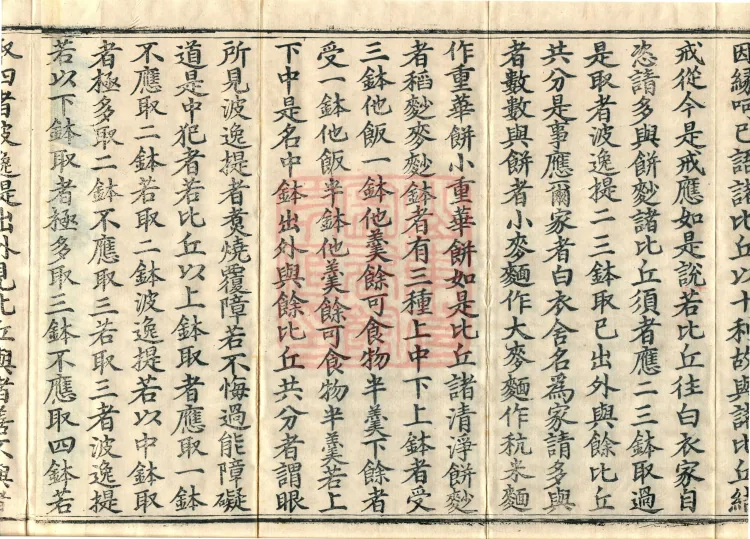 因緣呵已語諸比丘以十利故與諸比丘結
戒從今是戒應如是說若比丘往白衣家自
恣請多與餅麨諸比丘須者應二三鉢取過
是取者波逸提二三鉢取已出外與餘比丘
共分是事應爾家者白衣舍名爲家請多與
者數數與餅者小麥麵作大麥麵作秔米麵
作重華餅小重華餅如是比丘諸清淨餅麨
者稻麨麥麨鉢者有三種上中下上鉢者受
三鉢他飯一鉢他羹餘可食物半羹下餘者
受一鉢他飯半鉢他羹餘可食物半羹若上
下中是名中鉢出外與餘比丘共分者謂眼
所見波逸提者煑燒覆障若不悔過能障礙
道是中犯者若比丘以上鉢取者應取一鉢
不應取二鉢若取二鉢波逸提若以中鉢取
者極多取二鉢不應取三若取三者波逸提
若以下鉢取者極多取三鉢不應取四鉢若
取四者波逸提出外見比丘與者善不與者